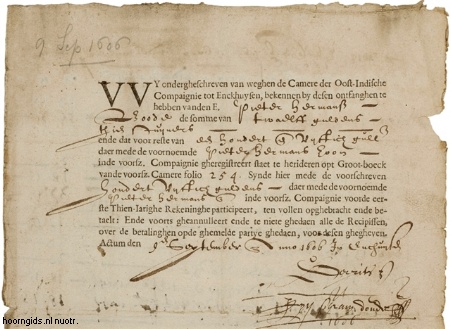 9 Sep 1606
WY ondergheschreven van weghen de Camere der Oost-Indische
Compaignie tot Enckhuysen, bekennen by desen ontfanghen te
hebben vanden E. Pieter Hermansz
de somme van twaelff guldens
ende dat voor reste van hondert guld
daer mede de voornoemde Pieter Hermans zoon
inde voorsz. Compaignie gheregistreert staet te herideren opt Groot-boeck
vande voorsz. Camere folio 254. Synde hier mede de voorschreven
hondert guldens daer mede de voornoemde
Pieter Hermans inde voorsz. Compaignie voorde eer-
ste Thien-Iarighe Rekeninghe participeert, ten vollen opghebracht ende be-
taelt: Ende voorts gheannulleert ende te niete ghedaen alle de Recipissen,
over de betalinghen opde ghemelde partye ghedaen, voor desen ghegheven.
Actum den 9 September Anno 1606
hoorngids.nl nuotr.